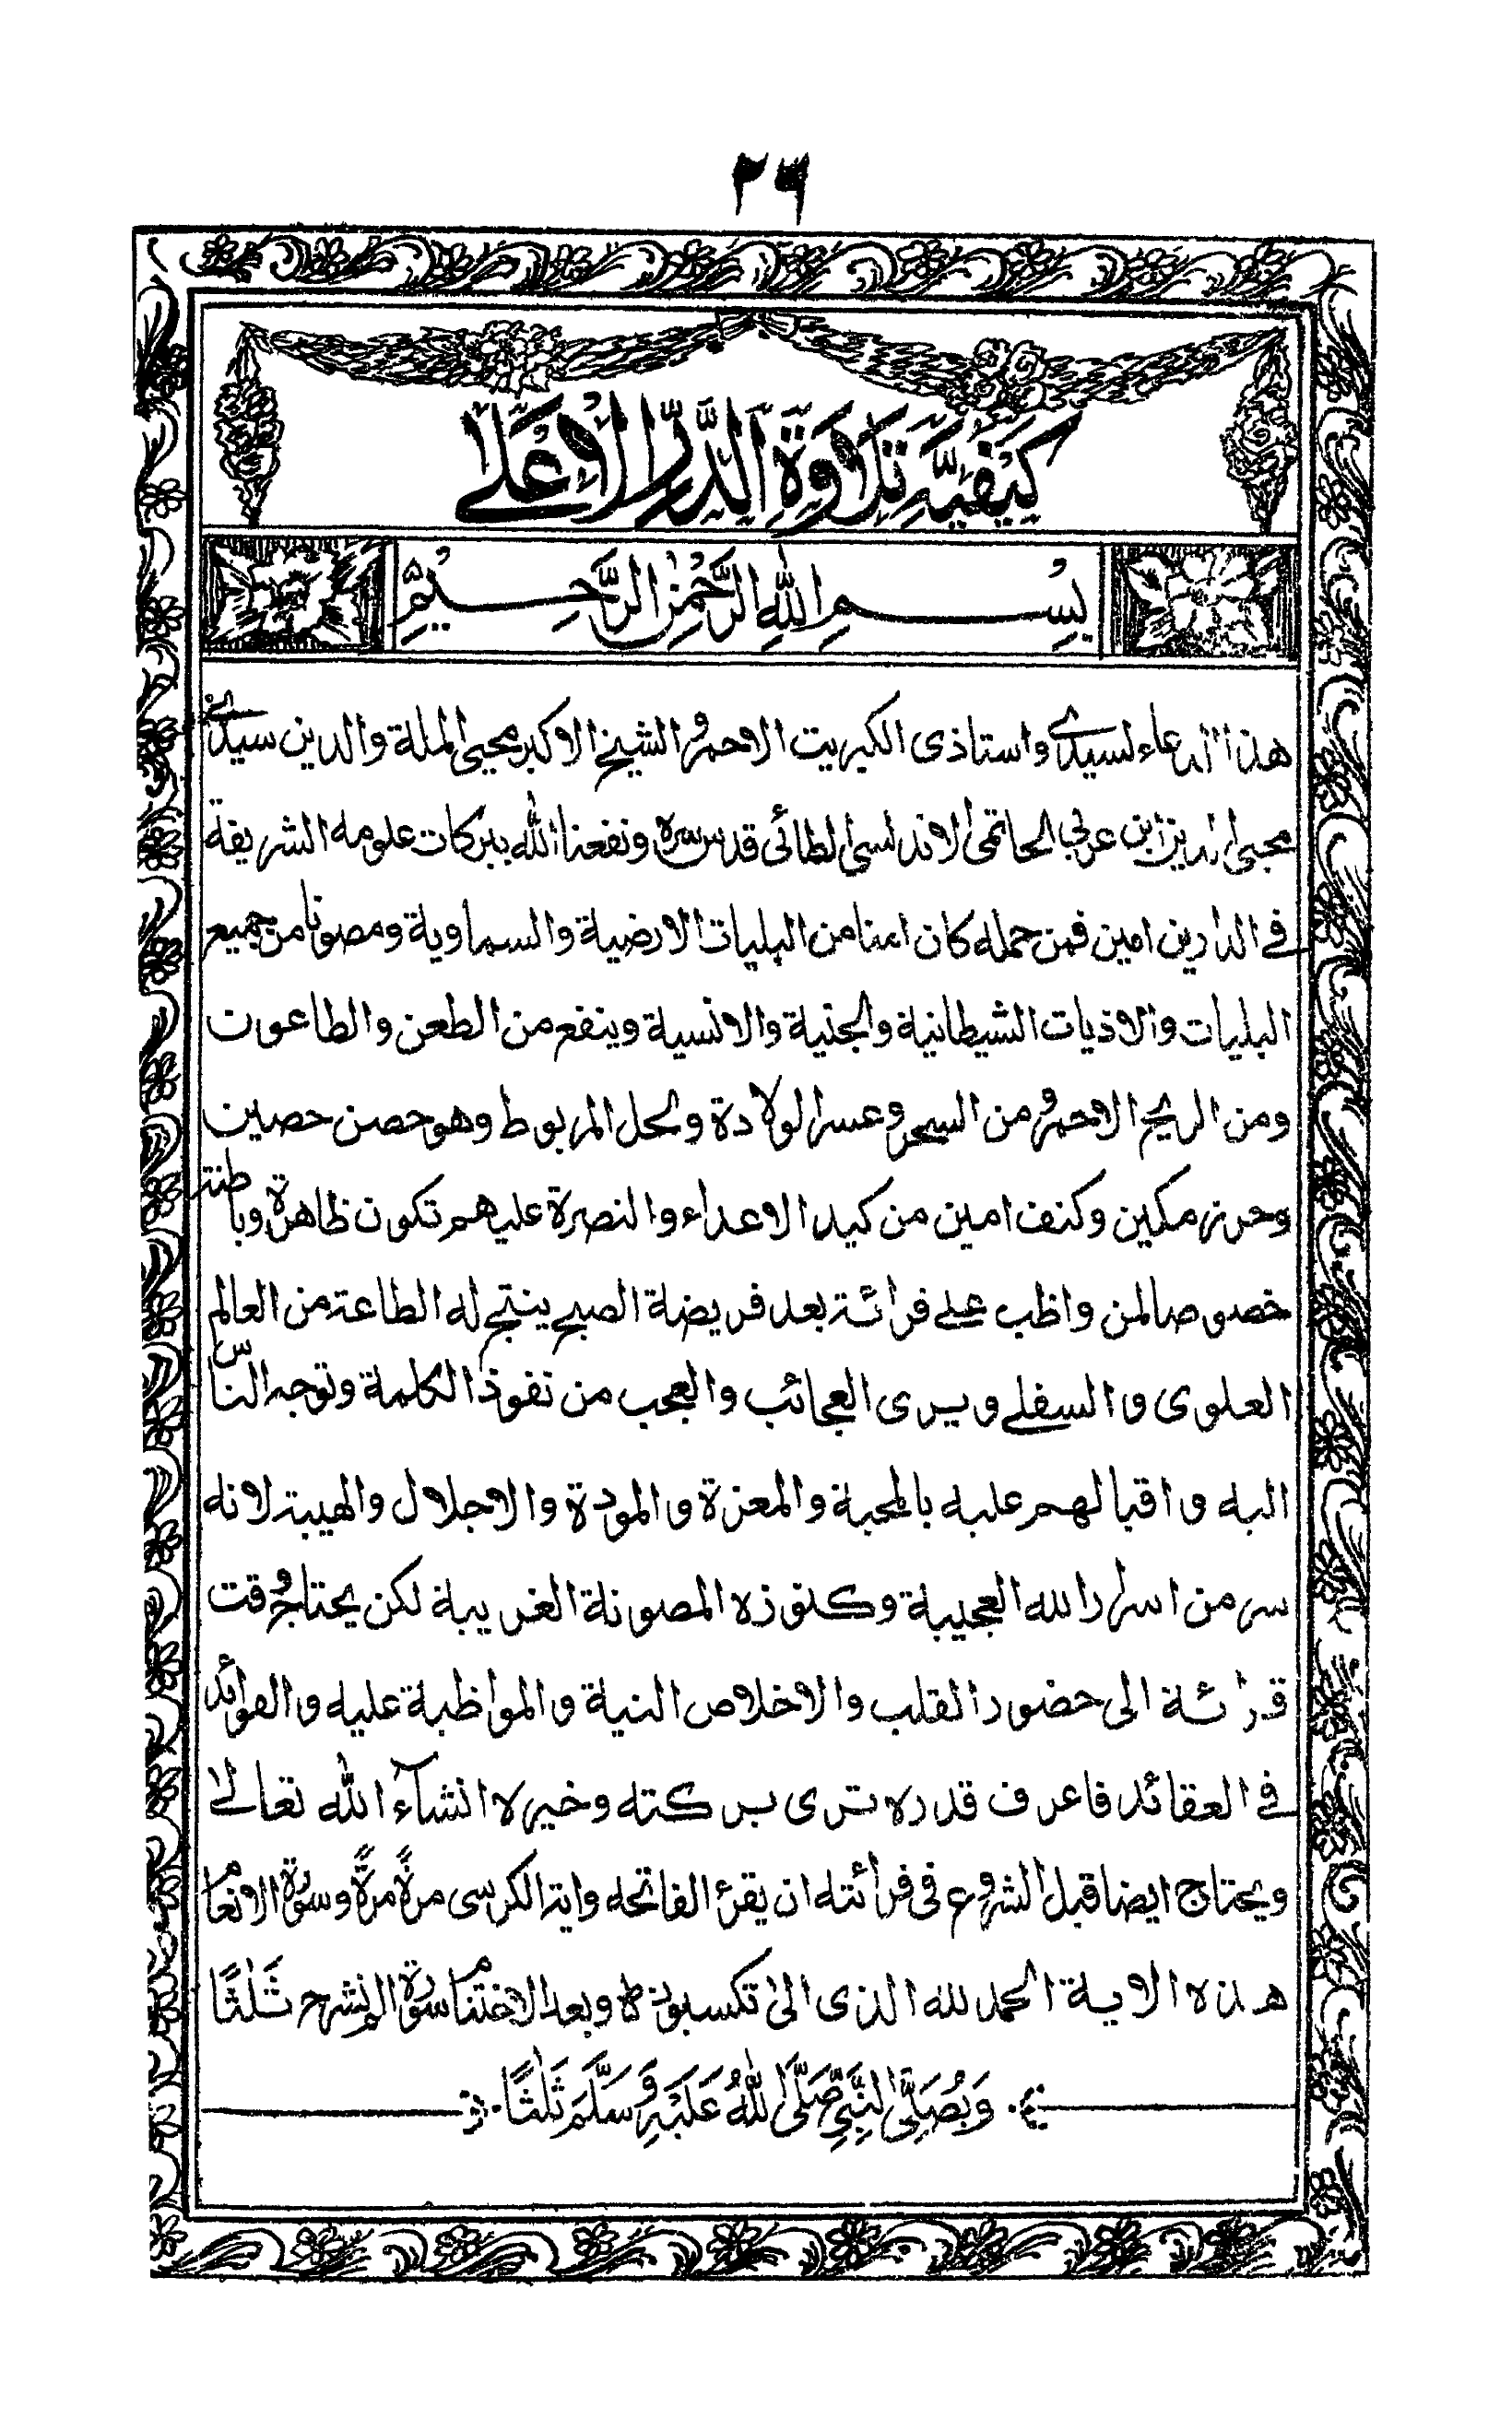 ٢٦
كَيْفِيَّةِ تِلَاوَةِ الدَّرِّ الْاَعْلٰى
بِسْمِ اللّٰهِ الرَّحْمٰنِ الرَّحِيْمِ
هذا الدعاء لسيدى واستاذى الكبريت الاحمر والشيخ الاكبر محيى الملة والدين سيدى
محيى الدين ابن عربي الحاتمى الاندلسى الطائى قدس سره ونفعنا الله ببركات علومه الشريفة
فى الدارين امين فمن حمله كان امنا من البليات الارضية والسماوية ومصونا من جميع
البليات والاذيات الشيطانية والجنية والانسية وينفع من الطعن والطاعون
ومن الريح الاحمر ومن السحر وعسر الولادة ولحل المربوط وهو حصن حصين
وحرز مكين وكنف امين من كيد الاعداء والنصرة عليهم تكون ظاهرة وباطنة
خصوصا لمن واظب على قرائة بعد فريضة الصبح ينتج له الطاعة من العالم
العلوى والسفلى ويرى العجائب والعجب من نفوذ الكلمة وتوجه الناس
اليه واقبالهم عليه بالمحبة والمعزة والمودة والاجلال والهيبة لانه
سر من اسرار الله العجيبة وكنوزه المصونة الغريبة لكن يحتاج وقت
قرائة الى حضور القلب والاخلاص النية والمواظبة عليه والفوائد
فى العقائد فاعرف قدره ترى بركته وخيره انشآء الله تعالىٰ
ويحتاج ايضا قبل الشروع فى قرائته ان يقرء الفاتحه واية الكرسى مرةً مرةً وسورة الانعام
هذه الاية الحمد لله الذى الى تكسبون ط وبعد الاختتام سورة الم نشرح ثَلٰثًا
وَيُصَلِّى النَّبِىِّ صَلَّى اللّٰهُ عَلَيْهِ وَسَلَّمَ ثَلٰثًا